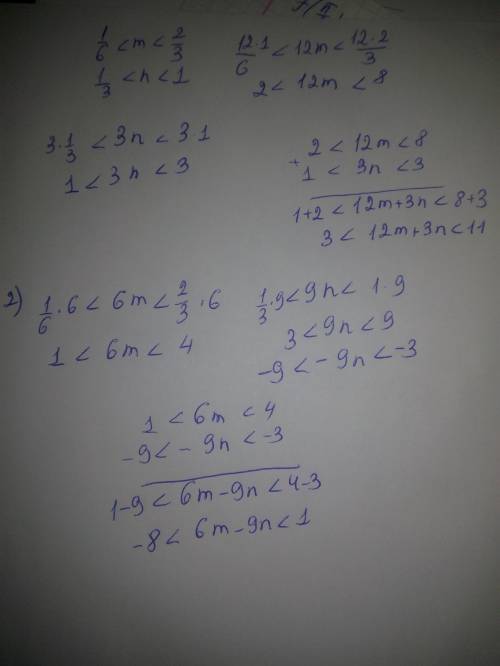 1/6 < m < 2/3
1/3 < n < 1
12·1/6 < 12m < 12·2/3
2 < 12m < 8
3·1/3 < 3n < 3·1
1 < 3n < 3
2 < 12m < 8
+ 1 < 3n < 3
1+2 < 12m+3n < 8+3
3 < 12m+3n < 11
2) 1/6·6 < 6m < 2/3·6
1 < 6m < 4
1/3·9 < 9n < 1·9
3 < 9n < 9
-9 < -9n < -3
1 < 6m < 4
-9 < -9n < -3
1-9 < 6m-9n < 4-3
-8 < 6m-9n < 1